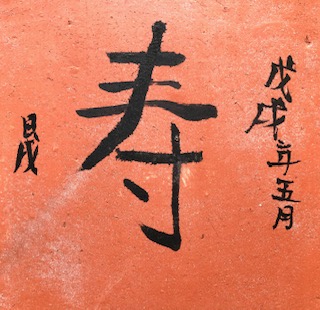 戊戌年五月
寿
晟